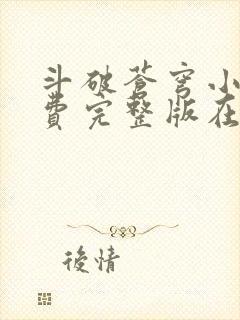 斗破苍穹小
费完整版在
後情